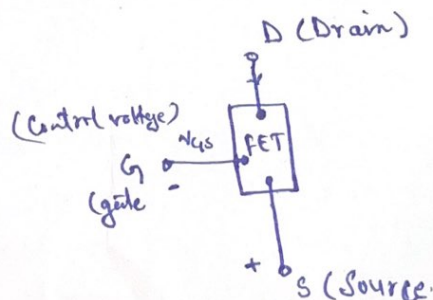 D (Drain)
(Control voltage)
VGS
FET
G
(gate
-
+
S (Source